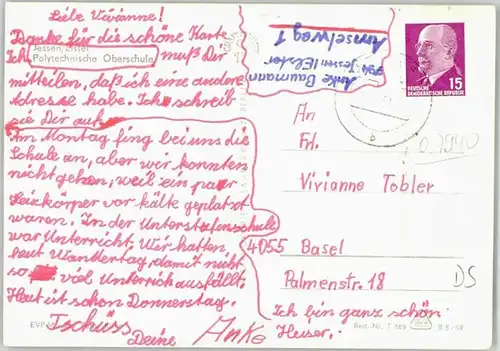 Liebe Vivianne!
Danke für die schöne Karte
Ich muß Dir
Jessen/Elster
Polytechnische Oberschule
mitteilen, daß ich eine andere
Adresse habe. Ich schreib
sie Dir auf.
Am Montag fing bei uns die
Schule an, aber wir konnten
nicht gehen, weil ein paar
Heizkörper vor kälte geplatzt
waren. In der Unterstufenschule
war Unterricht. Wir hatten
heut Wandertag, damit nicht
so viel Unterricht ausfällt.
Heut ist schon Donnerstag.
Tschüss
Deine Anke
EVP
Anke Baumann
Jessen/Elster
Amselweg 1
15
DEUTSCHE
DEMOKRATISCHE REPUBLIK
An
Frl.
Vivianne Tobler
4055 Basel
Palmenstr. 18
DS
Ich bin ganz schön
Heiser.
Best.-Nr. T 569 B 8/69